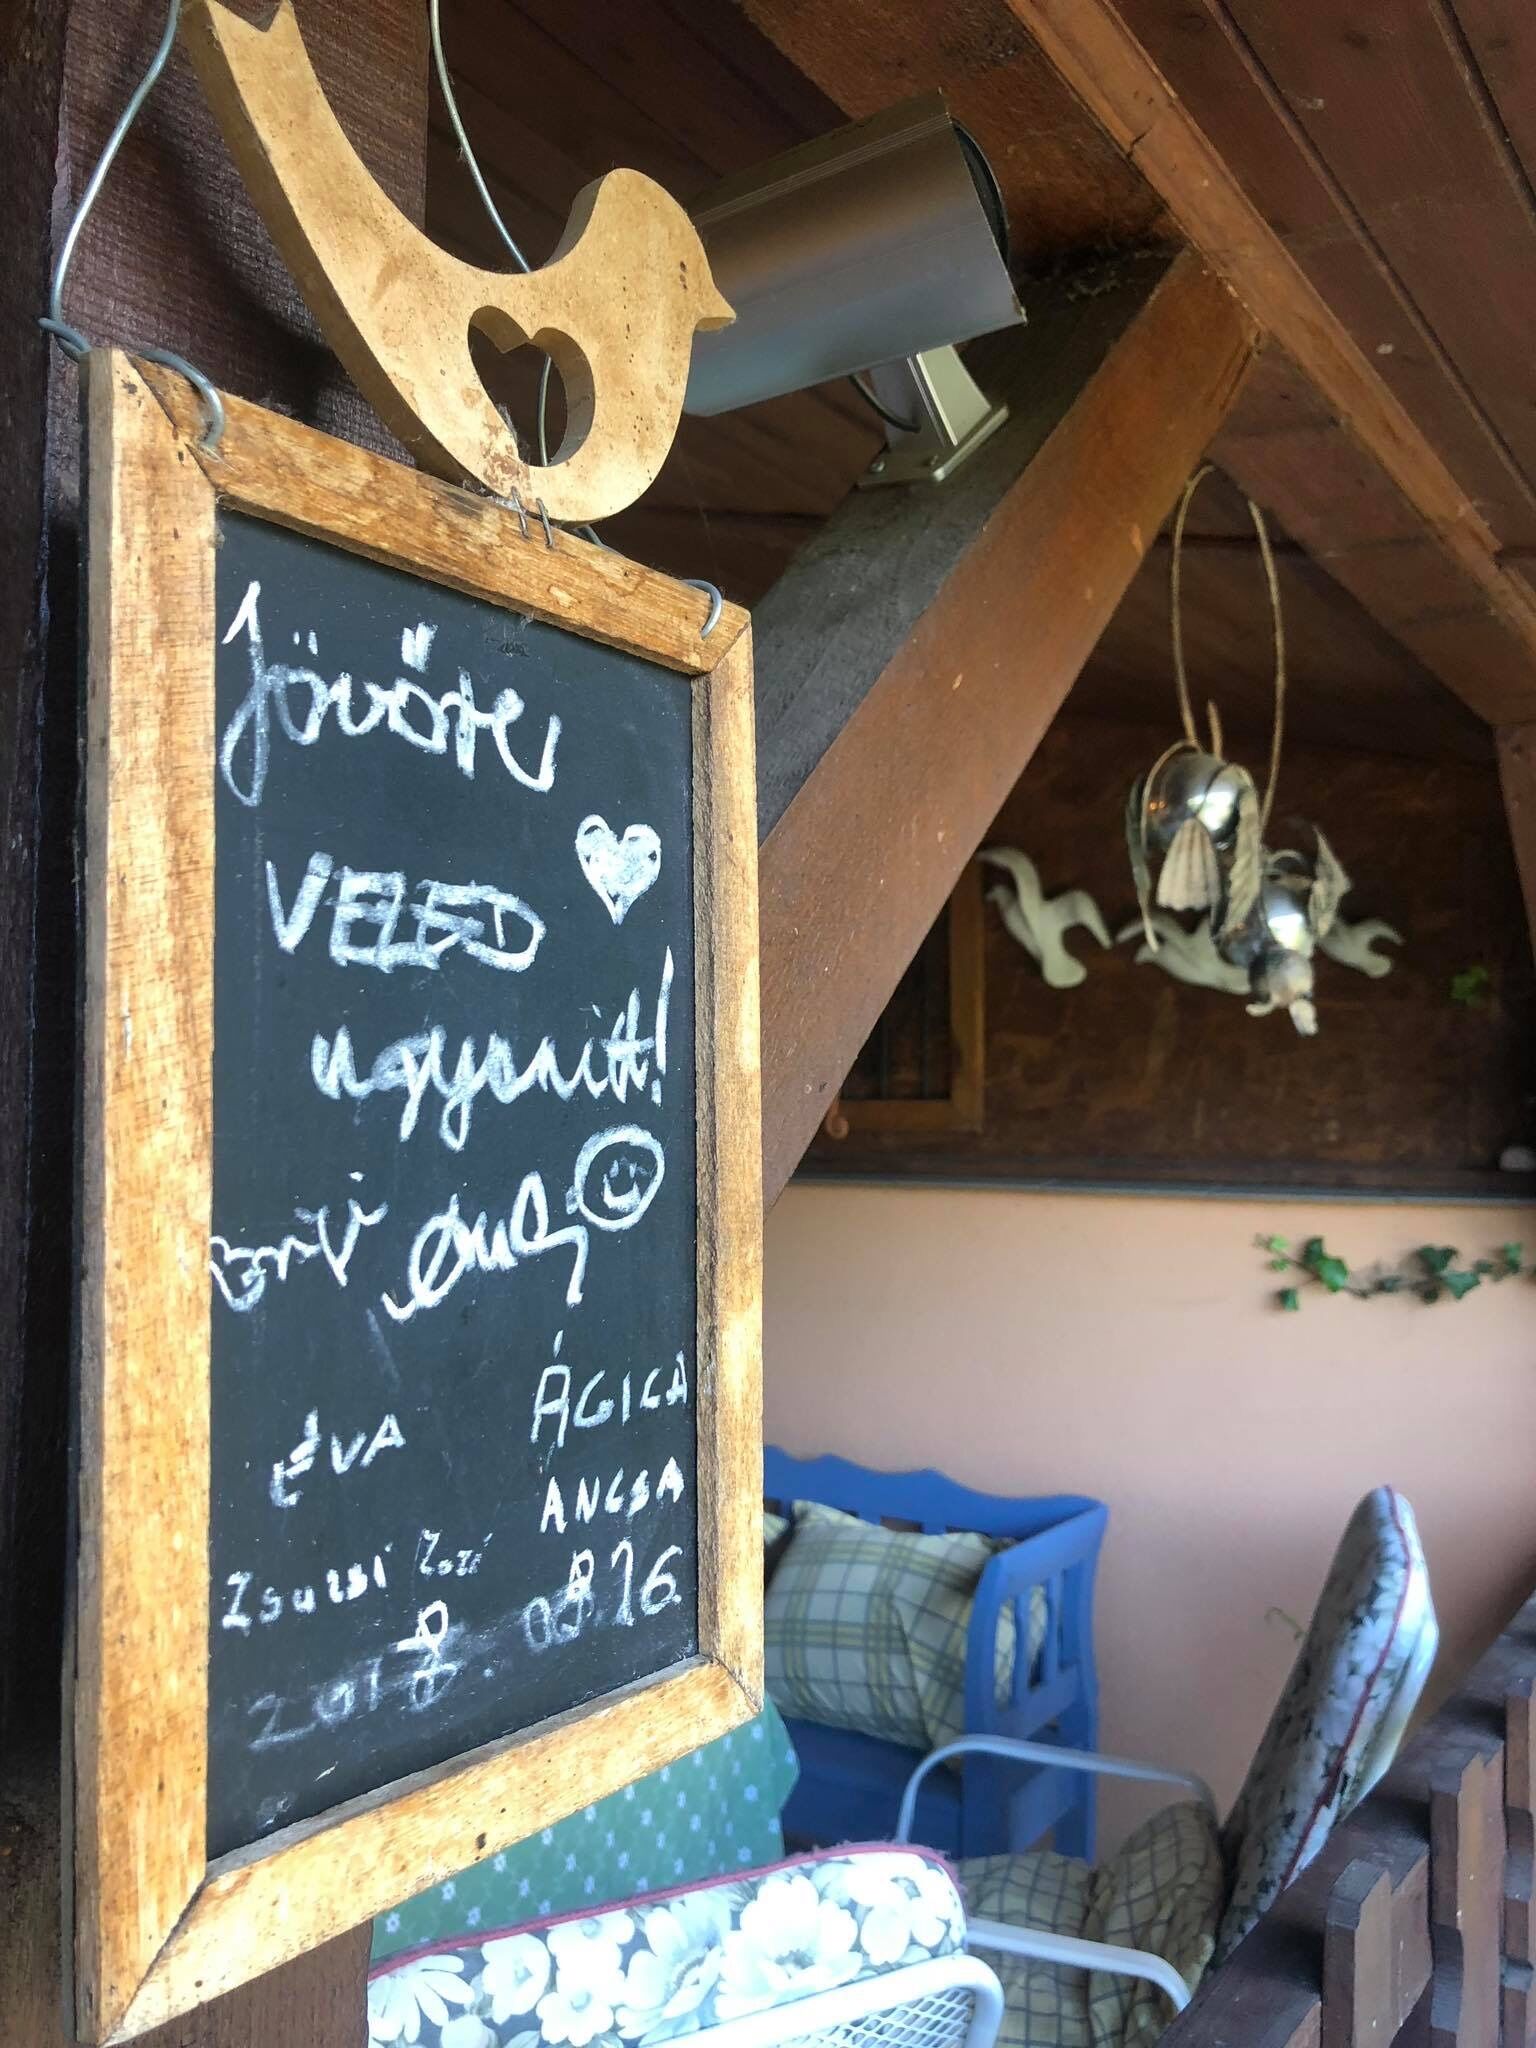 Jövőre
VELED
ugyanitt!
ÉVA
ÁGICA
ANCSA
Zsuzsi Zozi
2018. 08 26.